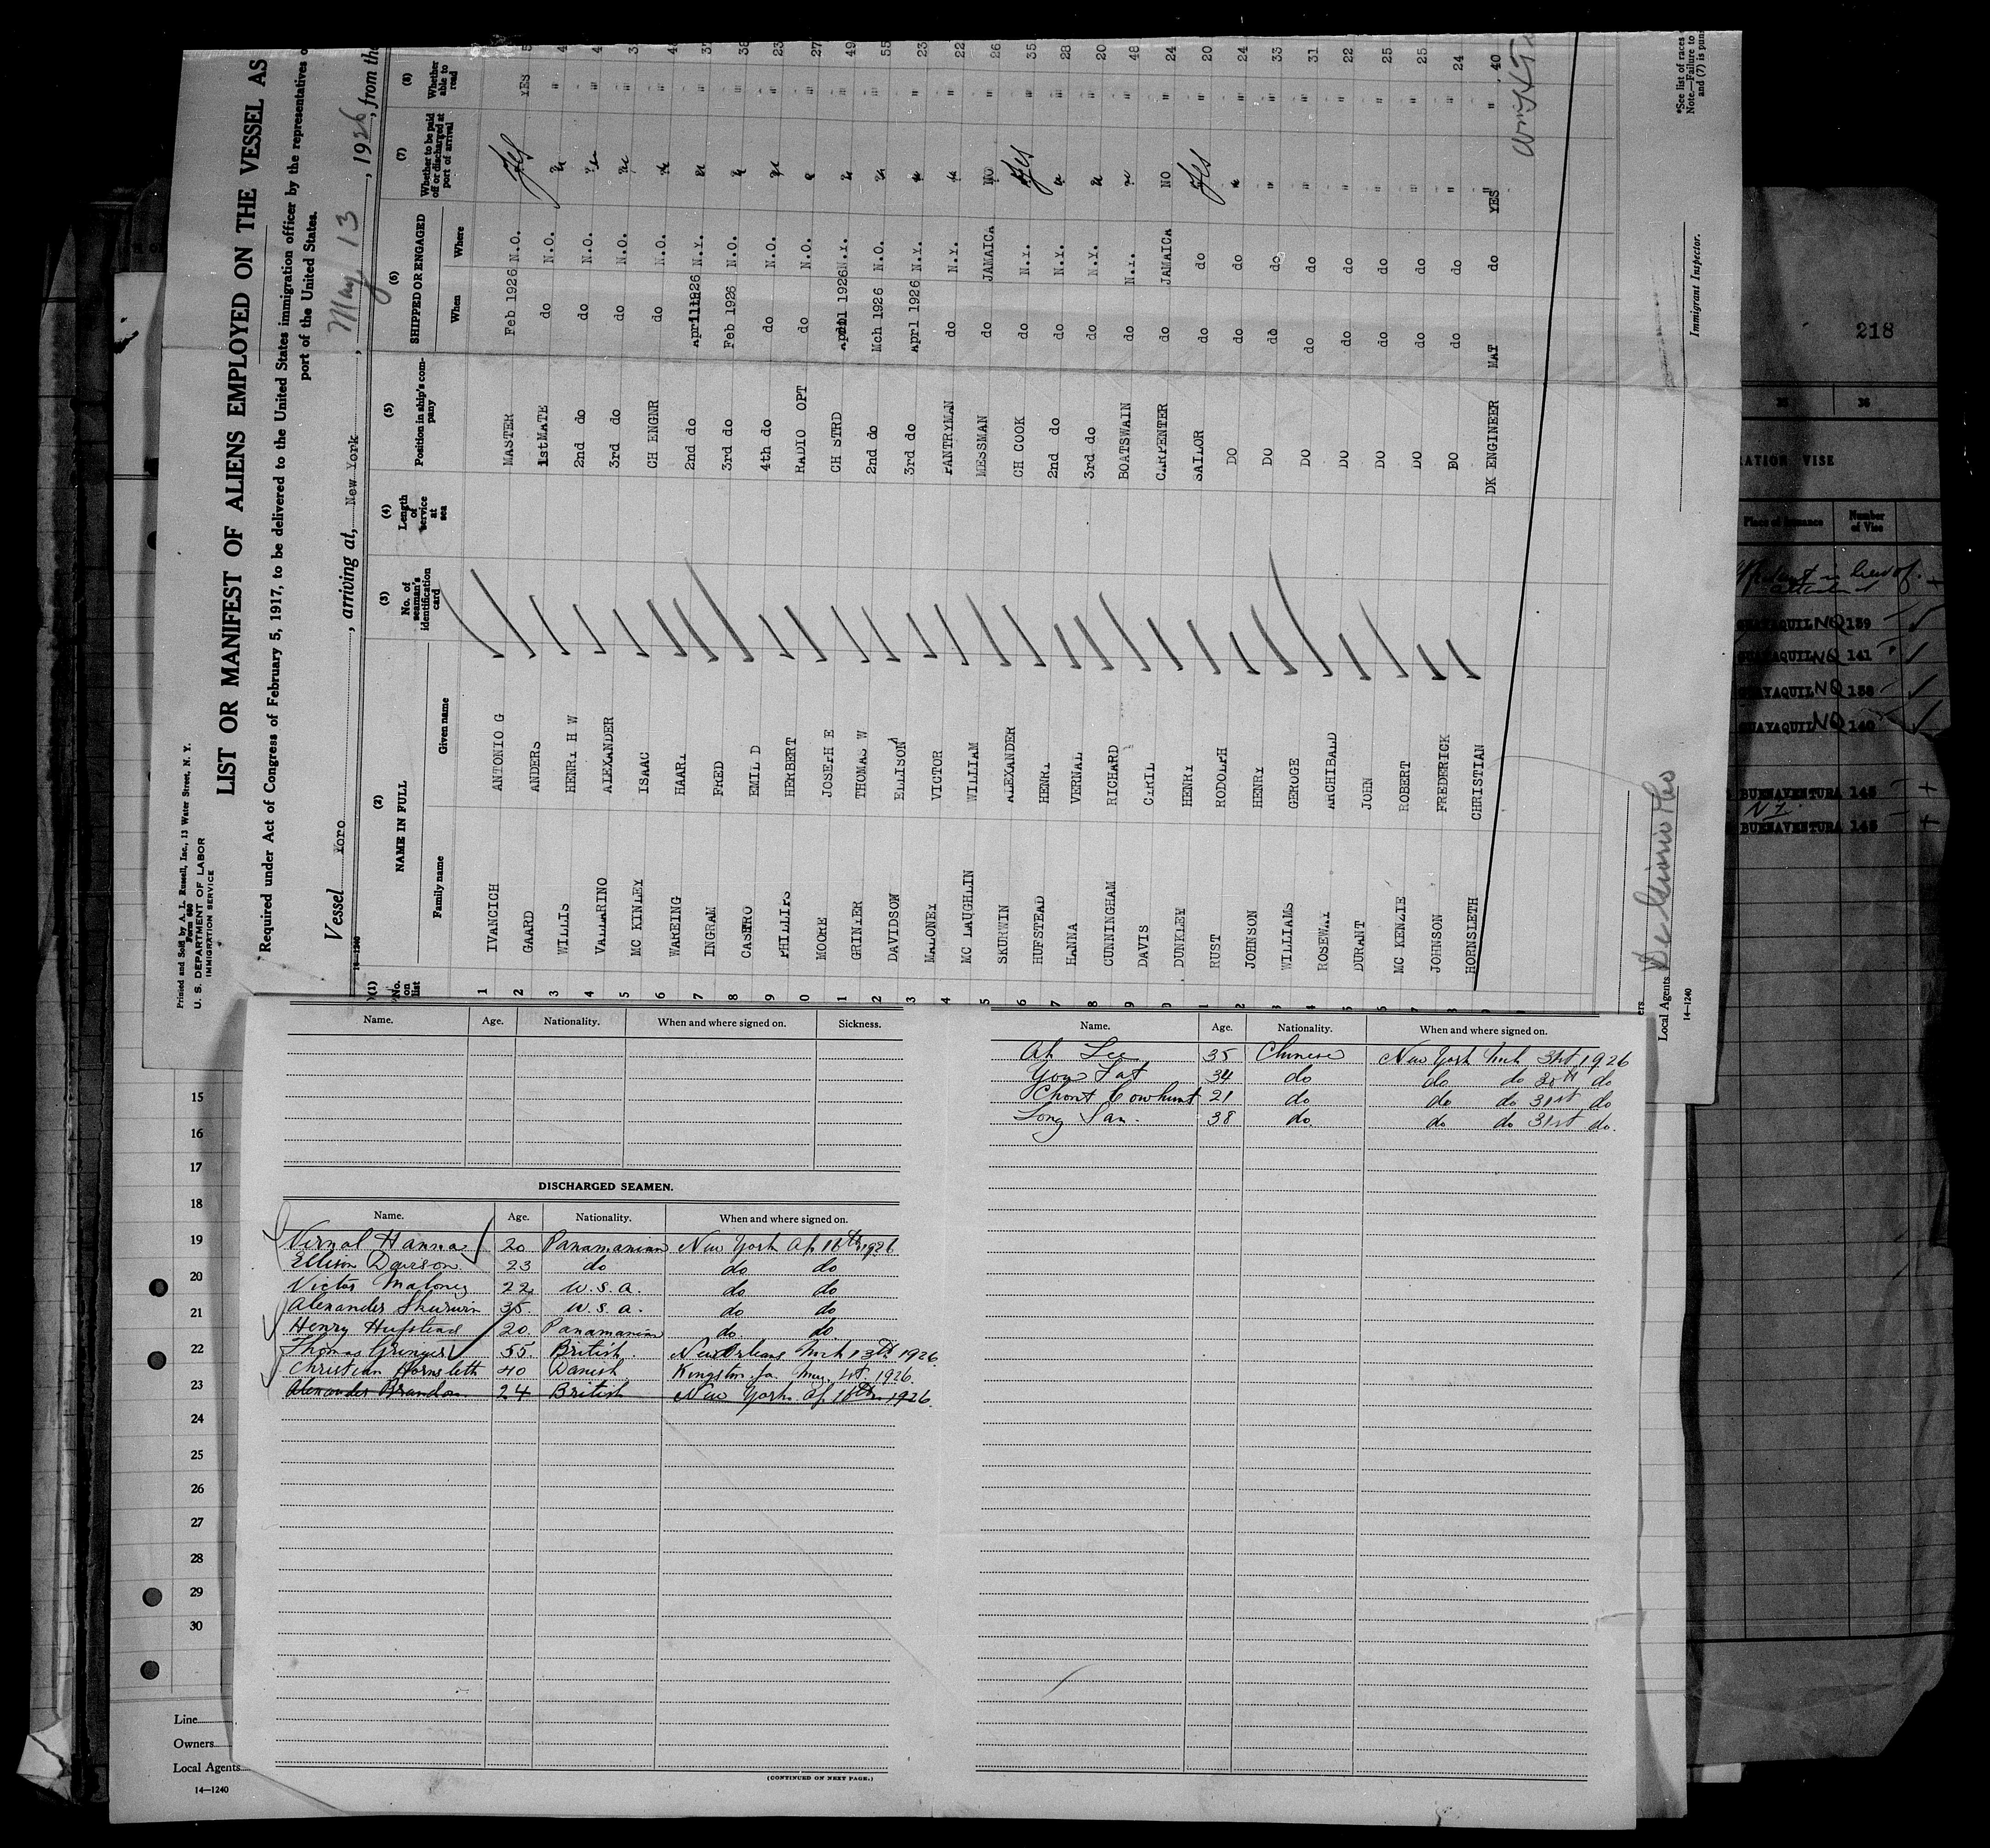 Printed and Sold by A. L. Russell, Inc., 13 Water Street, N. Y.
Form 680
U. S. DEPARTMENT OF LABOR
IMMIGRATION SERVICE
LIST OR MANIFEST OF ALIENS EMPLOYED ON THE VESSEL AS
Required under Act of Congress of February 5, 1917, to be delivered to the United States immigration officer by the representatives o
port of the United States.
Vessel Yoro, arriving at, New York, May 13, 1926, from the
14-1240
(1) No. on list (2) NAME IN FULL Family name Given name (3) No. of seaman's identification card (4) Length of service at sea (5) Position in ship's company (6) SHIPPED OR ENGAGED When Where (7) Whether to be paid off or discharged at port of arrival (8) Whether able to read
1 IVANCICH ANTONIO G MASTER Feb 1926 N.O. Yes YES 5
2 GAARD ANDERS 1st MATE do N.O. " " 4
3 WILLIS HENRY H W 2nd do do N.O. " " 4
4 VALLARINO ALEXANDER 3rd do do N.O. " " 3
5 MC KINLEY ISAAC CH ENGNR do N.O. " " 4
6 WAKEING HAARY 2nd do April 1926 N.Y. " " 3
7 INGRAM FRED 3rd do Feb 1926 N.O. " " 38
8 CASTRO EMIL D 4th do do N.O. " " 23
9 PHILLIPS HERBERT RADIO OPT do N.O. " " 27
0 MOORE JOSEPH E CH STRD April 1926 N.Y. " " 49
1 GRINYER THOMAS W 2nd do Mch 1926 N.O. " " 55
2 DAVIDSON ELLISON A 3rd do Aprl 1926 N.Y. " " 23
3 MALONEY VICTOR PANTRYMAN do N.Y. " " 22
4 MC LAUGHLIN WILLIAM MESSMAN do JAMAICA NO " 26
5 SKURWIN ALEXANDER CH COOK do N.Y. Yes " 35
6 HUFSTEAD HENRY 2nd do do N.Y. " " 28
7 HANNA VERNAL 3rd do do N.Y. " " 20
8 CUNNINGHAM RICHARD BOATSWAIN do N.Y. " " 48
9 DAVIS CYRIL CARPENTER do JAMAICA NO " 24
0 DUNKLEY HENRY SAILOR do do Yes " 20
1 RUST RODOLPH DO do do " " 24
2 JOHNSON HENRY DO do do " " 33
3 WILLIAMS GEROGE DO do do " " 31
4 ROSEWAY ARCHIBALD DO do do " " 22
5 DURANT JOHN DO do do " " 25
6 MC KENZIE ROBERT DO do do " " 25
7 JOHNSON FREDERICK DO do do " " 24
8 HORNSLETH CHRISTIAN DK ENGINEER MAY do YES " 40
Local Agents
14-1240
Immigrant Inspector.
*See list of races
Note.—Failure to
and (7) is pun
218
35 36
RATION VISE
Place of Issuance Number of Vise
GUAYAQUIL NQ 139
GUAYAQUIL NQ 141
GUAYAQUIL NQ 138
GUAYAQUIL NQ 140
BUENAVENTURA 145
BUENAVENTURA 145
Name. Age. Nationality. When and where signed on. Sickness.
DISCHARGED SEAMEN.
Name. Age. Nationality. When and where signed on.
Vernal Hanna 20 Panamanian New York Ap. 16th 1926
Ellison Davison 23 do do do
Victor Maloney 22 U.S.A. do do
Alexander Skurwin 35 U.S.A. do do
Henry Hufstead 20 Panamanian do do
Thomas Grinyer 55 British New Orleans Mch 13th 1926
Christian Hornsleth 40 Danish Kingston Ja May 1st 1926
Alexander Brandon 24 British New York Ap 16th 1926
(CONTINUED ON NEXT PAGE.)
Name. Age. Nationality. When and where signed on.
Ah Lee 35 Chinese New York Mch 31st 1926
Yow Fat 34 do do do 30th do
Chont Cowhunt 21 do do do 31st do
Long San 38 do do do 31st do
15
16
17
18
19
20
21
22
23
24
25
26
27
28
29
30
Line
Owners
Local Agents
14—1240